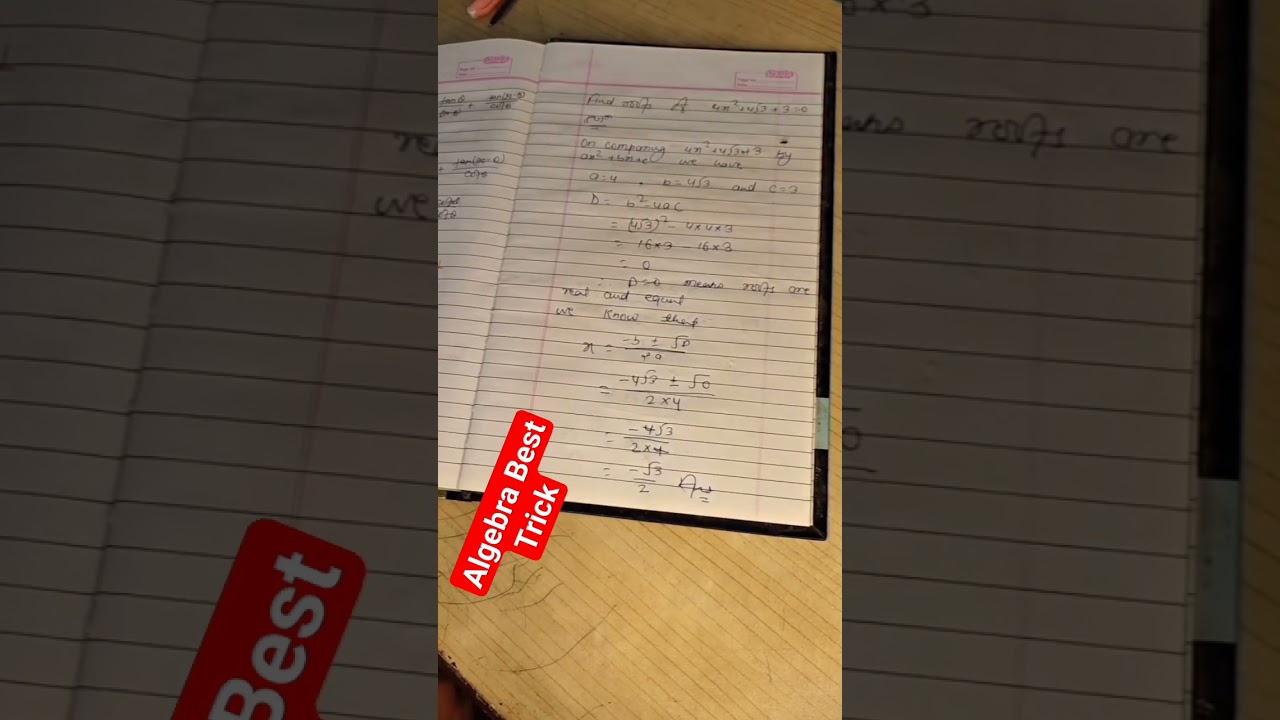 Find roots of 4x²+4√3+3=0
Solⁿ
On comparing 4x²+4√3+3 by
ax²+bx+c we have
a=4, b=4√3 and c=3
D = b²-4ac
= (4√3)² - 4×4×3
= 16×3 - 16×3
= 0
∴ D=0 means roots are
real and equal
we know that
x = -b ± √D / 2a
= -4√3 ± √0 / 2×4
= -4√3 / 2×4
= -√3 / 2 Ans
Algebra Best
Trick
Best
means roots are
we